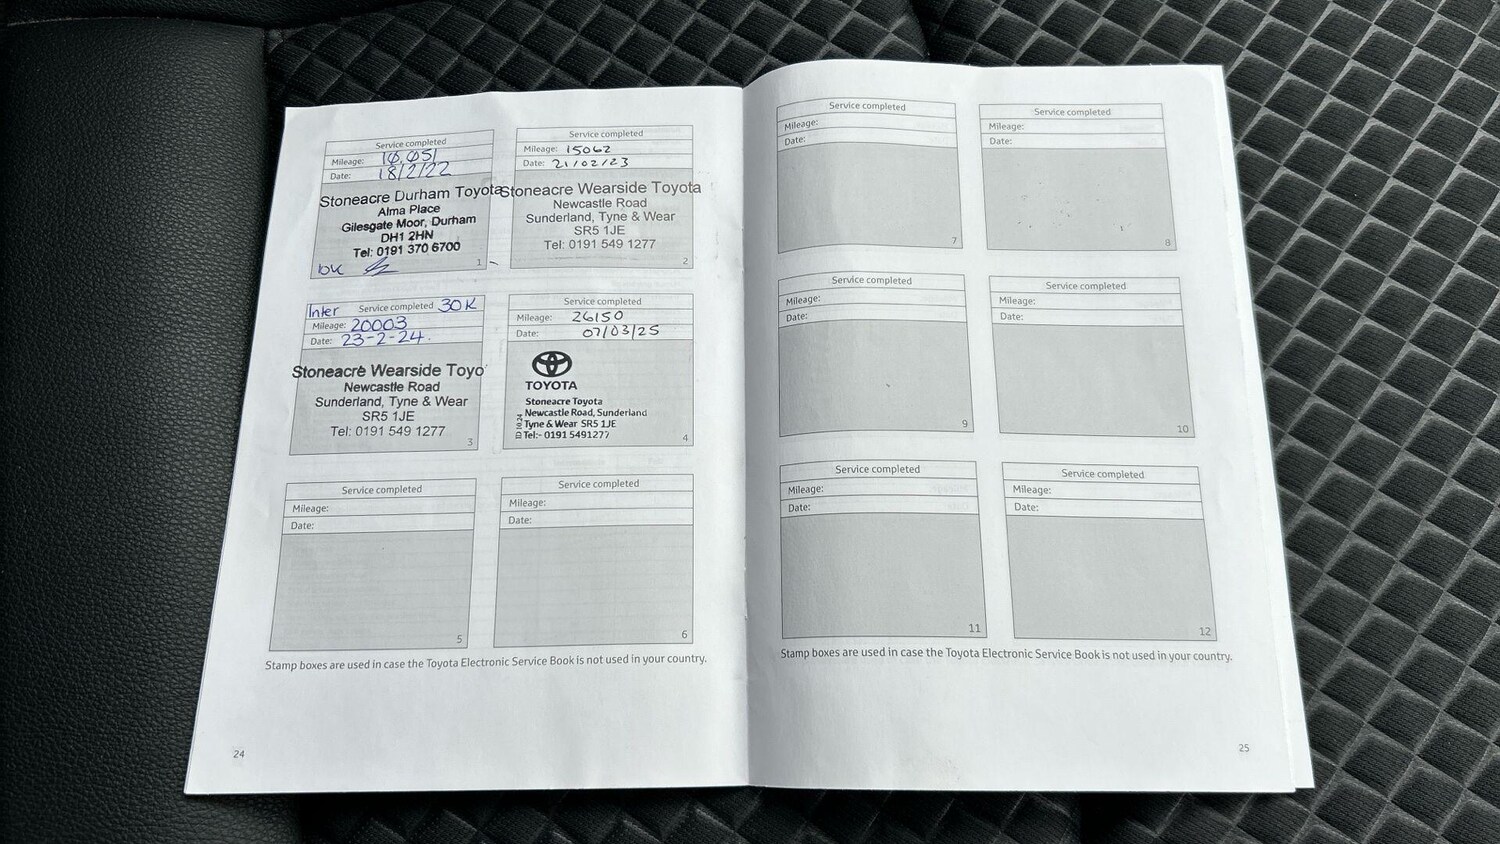 Service completed
Mileage: 10,051
Date: 18/2/22
Stoneacre Durham Toyota
Alma Place
Gilesgate Moor, Durham
DH1 2HN
Tel: 0191 370 6700
10K
1
Service completed
Mileage: 15062
Date: 21/02/23
Stoneacre Wearside Toyota
Newcastle Road
Sunderland, Tyne & Wear
SR5 1JE
Tel: 0191 549 1277
2
Inter Service completed 30K
Mileage: 20003
Date: 23-2-24.
Stoneacre Wearside Toyo
Newcastle Road
Sunderland, Tyne & Wear
SR5 1JE
Tel: 0191 549 1277
3
Service completed
Mileage: 26150
Date: 07/03/25
TOYOTA
Stoneacre Toyota
Newcastle Road, Sunderland
Tyne & Wear SR5 1JE
Tel:- 0191 5491277
4
Service completed
Mileage:
Date:
5
Service completed
Mileage:
Date:
6
Stamp boxes are used in case the Toyota Electronic Service Book is not used in your country.
24
Service completed
Mileage:
Date:
7
Service completed
Mileage:
Date:
8
Service completed
Mileage:
Date:
9
Service completed
Mileage:
Date:
10
Service completed
Mileage:
Date:
11
Service completed
Mileage:
Date:
12
Stamp boxes are used in case the Toyota Electronic Service Book is not used in your country.
25